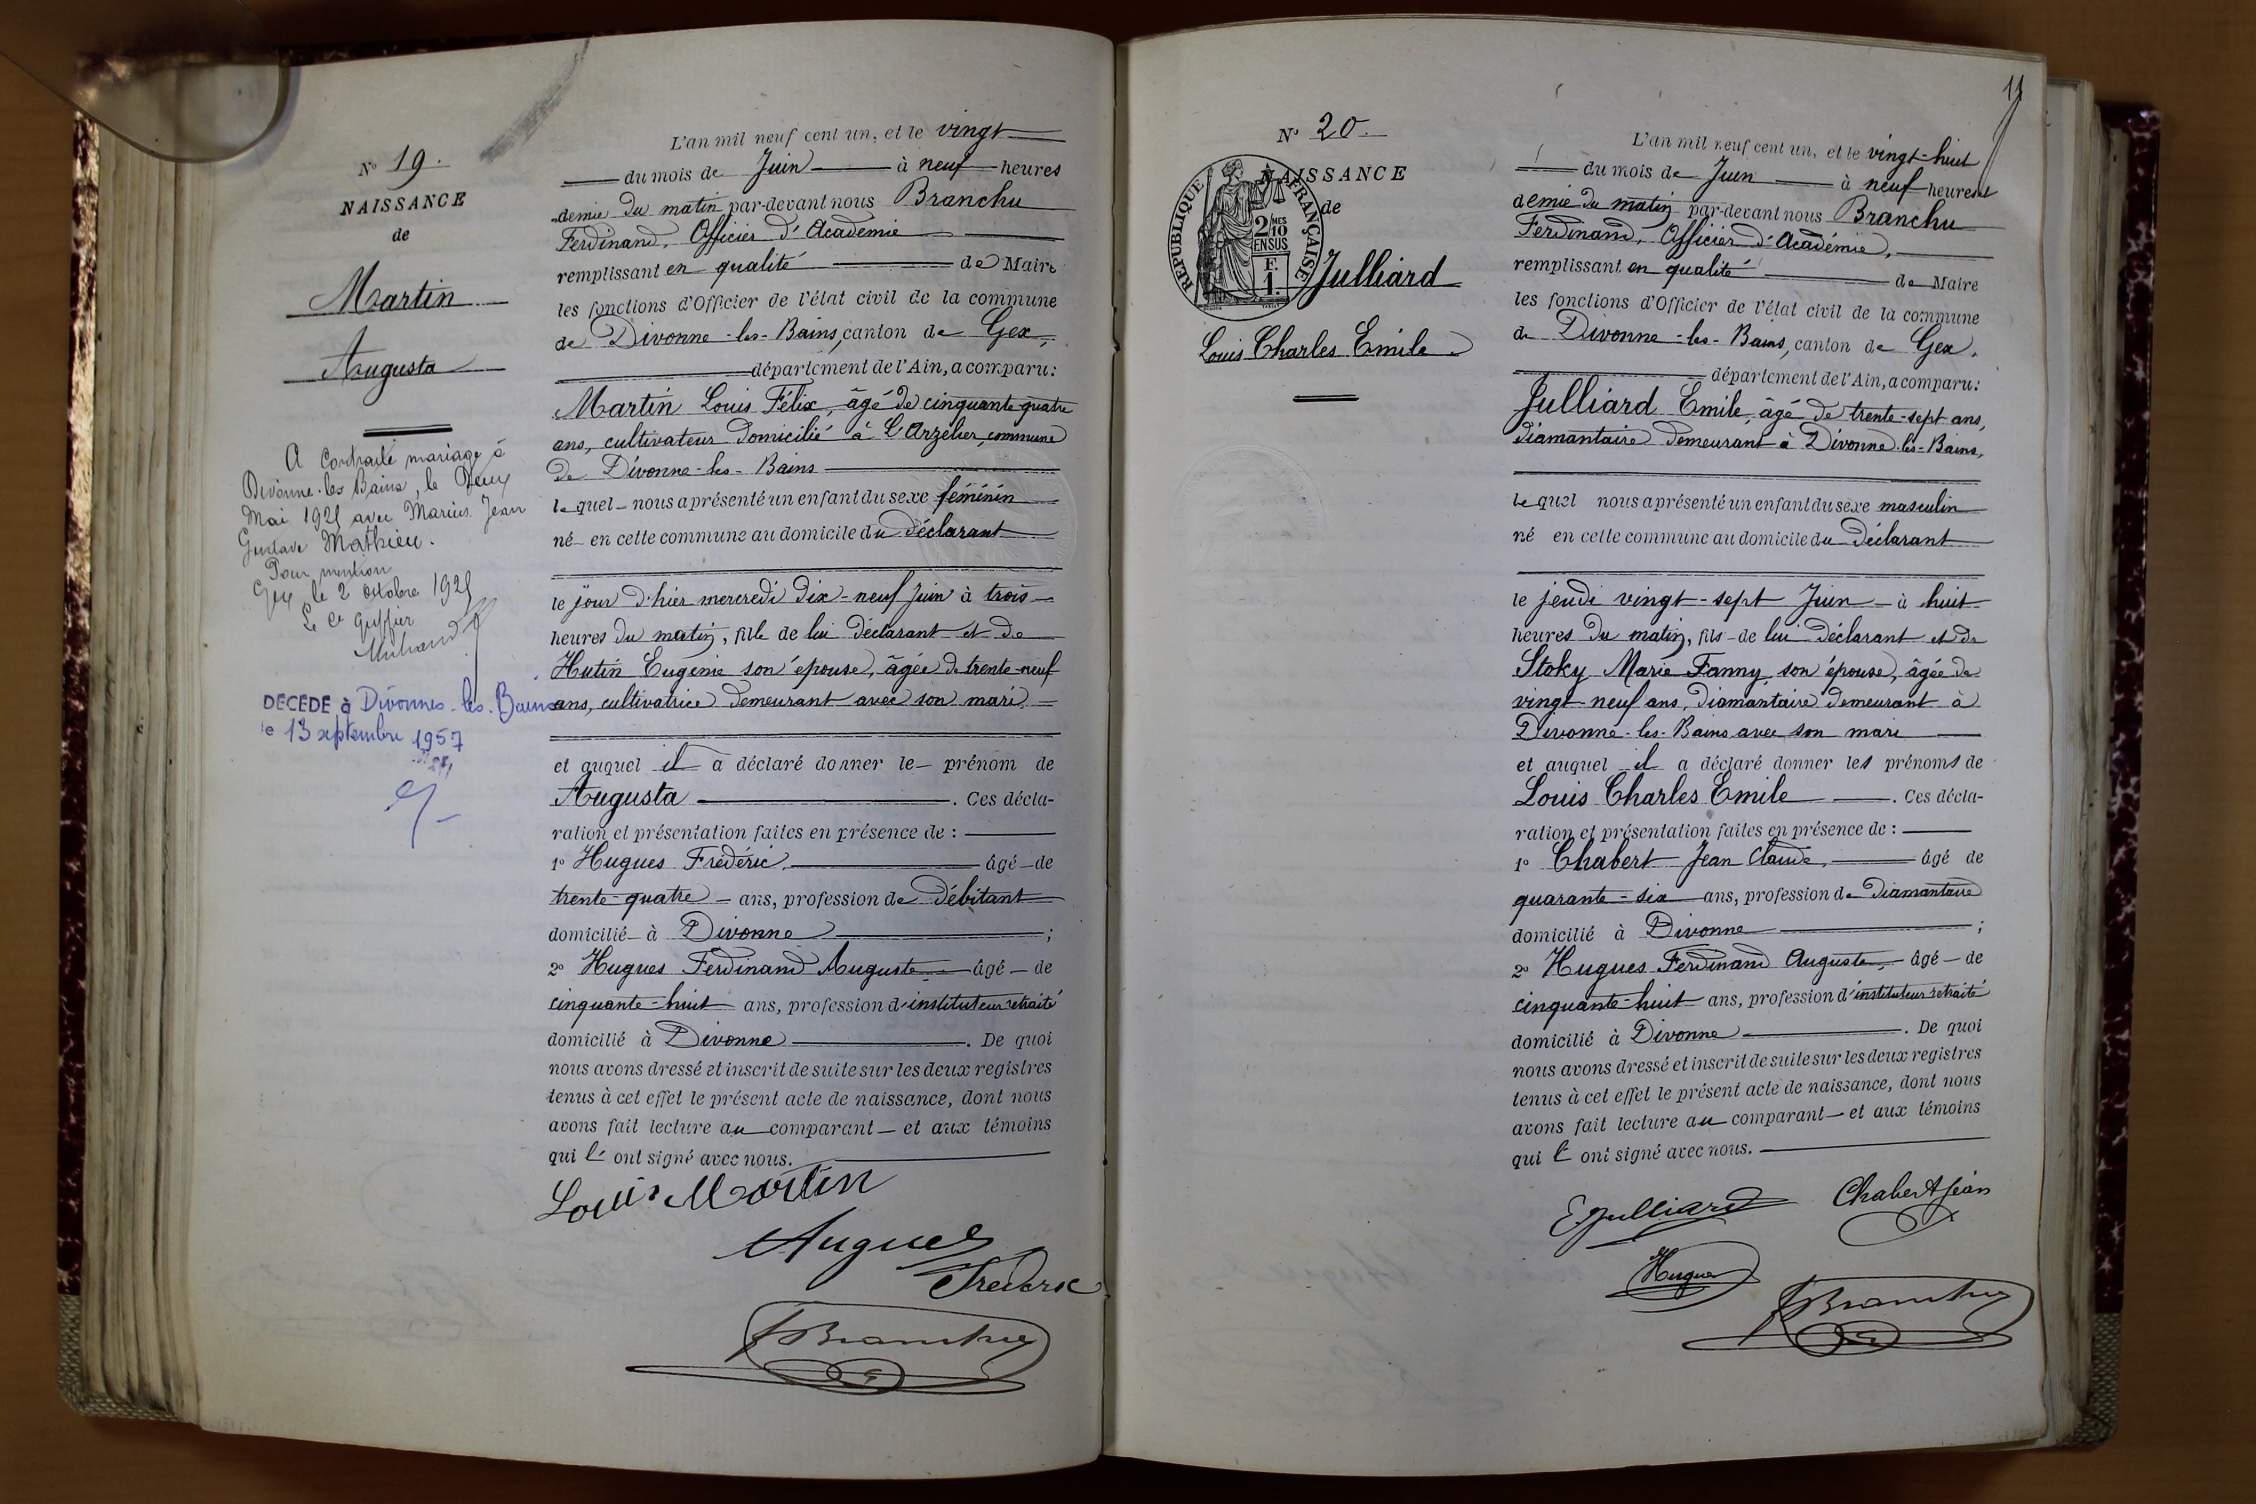 No 19.
NAISSANCE
de
Martin
Augusta
A contracté mariage à
Divonne-les Bains, le Deux
Mai 1921 avec Marius Jean
Gustave Mathieu.
Pour mention
Gex le 2 octobre 1921
Le Cs Greffier
DECEDE à Divonne-les-Bains
le 13 septembre 1957
L'an mil neuf cent un, et le vingt
du mois de Juin à neuf heures
demie du matin par-devant nous Branchu
Ferdinand, Officier d'Académie
remplissant en qualité de Maire
les fonctions d'Officier de l'état civil de la commune
de Divonne-les-Bains, canton de Gex,
département de l'Ain, a comparu:
Martin Louis Félix, âgé de cinquante-quatre
ans, cultivateur domicilié à L'Arzelier, commune
de Divonne-les-Bains
lequel nous a présenté un enfant du sexe féminin
né en cette commune au domicile du déclarant
le jour d'hier mercredi dix-neuf Juin à trois
heures du matin, fille de lui déclarant et de
Hutin Eugénie son épouse, âgée de trente-neuf
ans, cultivatrice demeurant avec son mari
et auquel il a déclaré donner le prénom de
Augusta. Ces décla-
ration et présentation faites en présence de :
1o Hugues Frédéric, âgé de
trente-quatre ans, profession de débitant
domicilié à Divonne ;
2o Hugues Ferdinand Auguste âgé de
cinquante-huit ans, profession d'instituteur retraité
domicilié à Divonne. De quoi
nous avons dressé et inscrit de suite sur les deux registres
tenus à cet effet le présent acte de naissance, dont nous
avons fait lecture au comparant et aux témoins
qui l' ont signé avec nous.
Louis Martin
Hugues
Frederic
FBranchu
11
No 20.
NAISSANCE
de
REPUBLIQUE FRANÇAISE
2/10
EN SUS
F.
1.
Julliard
Louis Charles Emile
L'an mil neuf cent un, et le vingt-huit
du mois de Juin à neuf heures et
demie du matin par-devant nous Branchu
Ferdinand, Officier d'Académie,
remplissant en qualité de Maire
les fonctions d'Officier de l'état civil de la commune
de Divonne-les-Bains, canton de Gex,
département de l'Ain, a comparu:
Julliard Emile, âgé de trente-sept ans,
diamantaire demeurant à Divonne-les-Bains,
lequel nous a présenté un enfant du sexe masculin
né en cette commune au domicile du déclarant
le jeudi vingt-sept Juin à huit
heures du matin, fils de lui déclarant et de
Stoky Marie Fanny, son épouse, âgée de
vingt-neuf ans, diamantaire demeurant à
Divonne-les-Bains avec son mari
et auquel il a déclaré donner les prénoms de
Louis Charles Emile. Ces décla-
ration et présentation faites en présence de :
1o Chabert Jean Claude, âgé de
quarante-six ans, profession de diamantaire
domicilié à Divonne ;
2o Hugues Ferdinand Auguste, âgé de
cinquante-huit ans, profession d'instituteur retraité
domicilié à Divonne. De quoi
nous avons dressé et inscrit de suite sur les deux registres
tenus à cet effet le présent acte de naissance, dont nous
avons fait lecture au comparant et aux témoins
qui l' ont signé avec nous.
E. Julliard Chabert Jean
Hugues
FBranchu